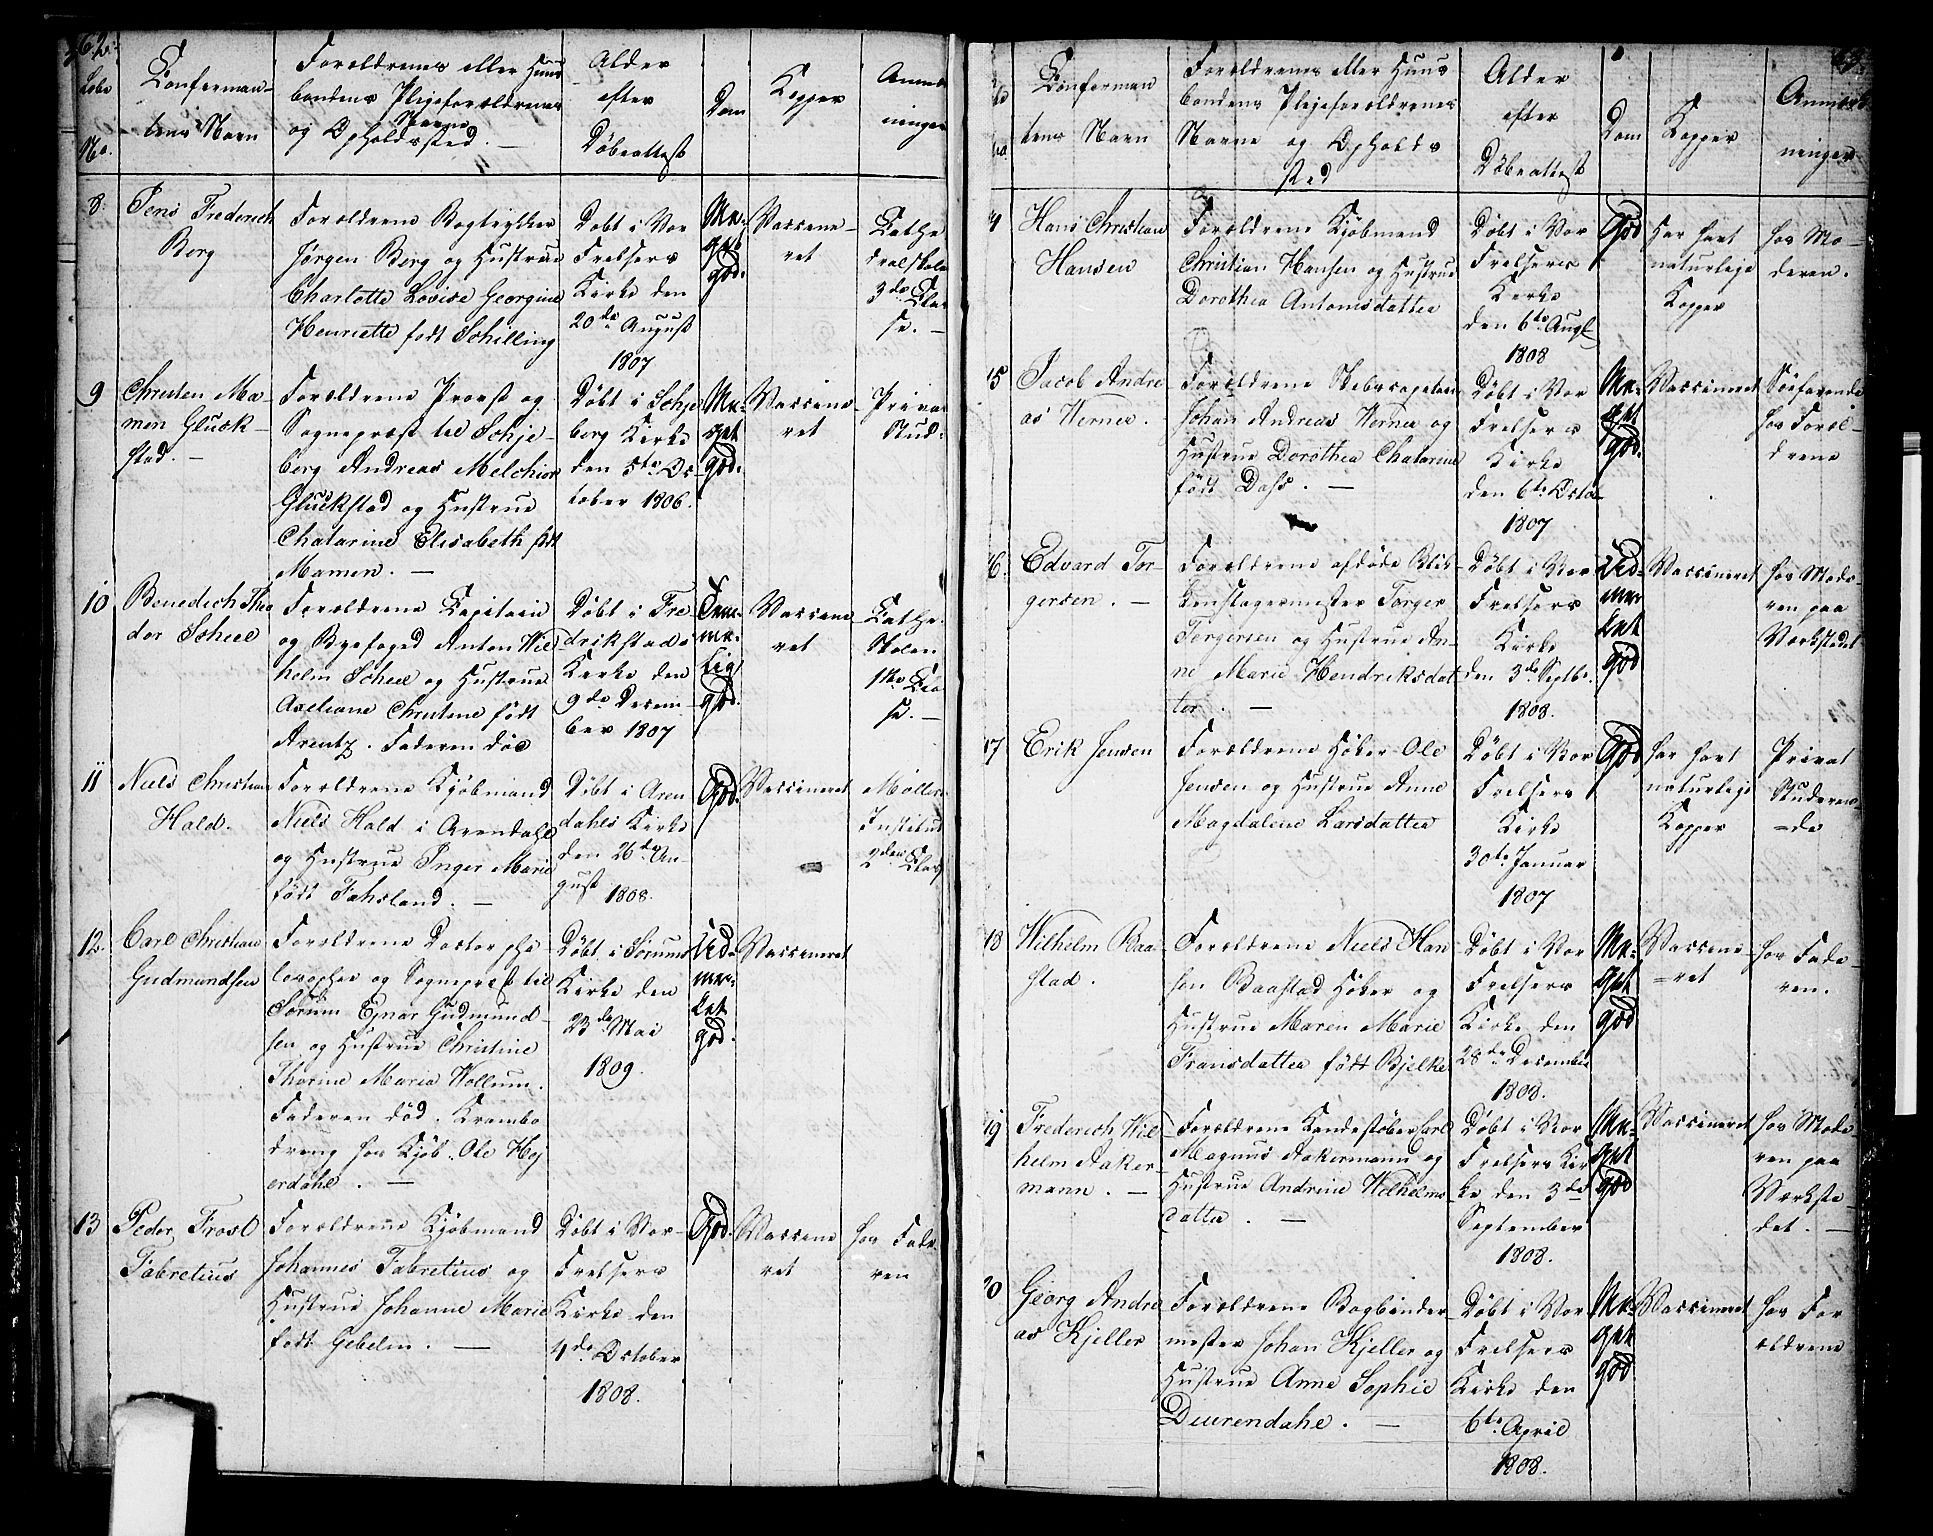 62.
Løbe
No.
Conferman-
tens Navn
Forældrenes eller Huus
bondens Plejeforældrenes
Navne
og Opholdssted. —
Alder
efter
Døbeattest
Dom
Kopper
Anmærk
ninger
8.
Jens Frederich
Berg
Forældrene Bogtrykker
Jørgen Berg og Hustrue
Charlotte Lovise Georgine
Henriette født Schilling
Døbt i Vor
Frelsers
Kirke den
20de August
1807
Me-
get
god.
Vaccine-
ret
Cathe
dralskolen
3de Clas
se. —
9
Christen Ma-
men Glück-
stad. —
Forældrene Provst og
Sognepræst til Schje-
berg Andreas Melchior
Glückstad og Hustrue
Chatarine Elisabeth født
Mamen. —
Døbt i Schje
berg Kirke
den 5te Oc-
tober 1806.
Me-
get
god.
Vaccine-
ret
Privat
Stud.
10
Benedich Theo
dor Scheel
Forældrene Capitain
og Byefoged Anton Wil
helm Scheel og Hustrue
Axeliane Christine født
Arentz. Faderen død
Døbt i Fre
drikstads
Kirke den
9de Decem-
ber 1807
Tem-
me-
lig
god.
Vaccine-
ret
Cathe.
Skolen
1ste Clas
se. —
11
Niels Christian
Hald.
Forældrene Kjøbmand
Niels Hald i Arendahl
og Hustrue Inger Marie
født Fahsland. —
Døbt i Aren
dahls Kirke
den 26de Au-
gust
1808.
God.
Vaccineret
Møllers
Institut
2den Class
12.
Carl Christian
Gudmundsen
Forældrene Doctor phi
losophie og Sognepræst til
Sørum Ejnar Gudmund-
sen og Hustrue Christine
Thorine Maria Wollum.
Faderen død. Krambo
dreng hos Kjøb. Ole Hej
erdahl. —
Døbt i Sørums
Kirke den
23de Mai
1809.
Ud-
mær-
ket
god.
Vaccineret
13
Peder Frost
Fabretius
Forældrene Kjøbmand
Johannes Fabretius og
Hustrue Johanne Marie
født Gebelin. —
Døbt i Vor-
Frelsers
Kirke den
4de October
1808.
God.
Vaccine
ret
hos Fade
ren
63.
Conferman
tens Navn
Forældrenes eller Huus
bondens Plejeforældrenes
Navne og Opholds
sted
Alder
efter
Døbeattest
Dom
Kopper
Anmærk
ninger
14
Hans Christian
Hansen
Forældrene Kjøbmand
Christian Hansen og Hustrue
Dorothea Antonisdatter
Døbt i Vor
Frelsers
Kirke
den 6te Augt
1808
God
Har havt
naturlige
Kopper
hos Mo-
deren.
15
Jacob Andre
as Werner.
Forældrene Skibscapitain
Johan Andreas Werner og
Hustrue Dorothea Chatarine
født Dass. —
Døbt i Vor
Frelsers
Kirke
den 6te Octob
1807
Me-
get
god.
Vaccineret
Søefarende
hos Foræl-
drene
16.
Edvard Tor-
gersen. —
Forældrene afdøde Blik-
kenslagermester Torger
Torgersen og Hustrue An-
ne Marie Hendriksdat
ter. —
Døbt i Vor
Frelsers
Kirke
den 3de Septbr.
1808.
Ud-
mær
ket
god
Vaccineret
hos Mode-
ren paa
Værkstedet
17
Erik Jensen
Forældrene Høker Ole
Jensen og Hustrue Anne
Magdalene Larsdatter
Døbt i Vor
Frelsers
Kirke
30te Januar
1807
God
har havt
naturlige
Kopper
Privat
Studeren-
=de
18
Wilhelm Baa-
stad.
Forældrene Niels Han
sen Baastad Høker og
Hustrue Maren Marie
Fransdatter født Bjelke
Døbt i Vor
Frelsers
Kirke den
28de December
1808.
Me-
get
god
Vaccine-
=ret
hos Fade-
ren.
19
Frederich Wil
helm Aaker-
mann. —
Forældrene Kandestøber Carl
Magnus Aakermann og
Hustrue Andrine Wilhelms
datter. —
Døbt i Vor
Frelsers Kir
ke den 3de
September
1808.
Me-
get
god
Vaccineret
hos Mode-
ren paa
Værkste
det. —
20
Georg Andre
as Kjeller
Forældrene Bogbinder-
mester Johan Kjeller og
Hustrue Anne Sophie
Duurendahl. —
Døbt i Vor
Frelsers
Kirke den
6te April
1808.
Me-
get
god
Vaccineret
hos For
ældrene